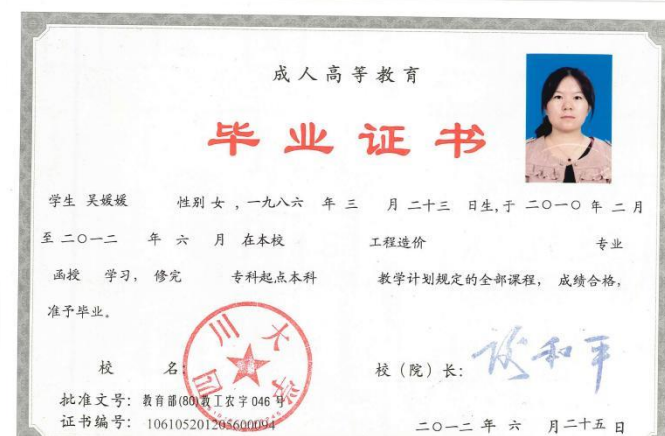 成人高等教育
毕业证书
学生 吴媛媛 性别 女 ，一九八六 年 三 月 二十三 日生,于 二〇一〇 年 二 月
至 二〇一二 年 六 月 在本校 工程造价 专业
函授 学习， 修完 专科起点本科 教学计划规定的全部课程， 成绩合格，
准予毕业。
四川大学
校 名: 校（院）长: 谈和平
批准文号: 教育部(80)教工农字 046 号
证书编号: 106105201205600094 二〇一二 年 六 月二十五 日